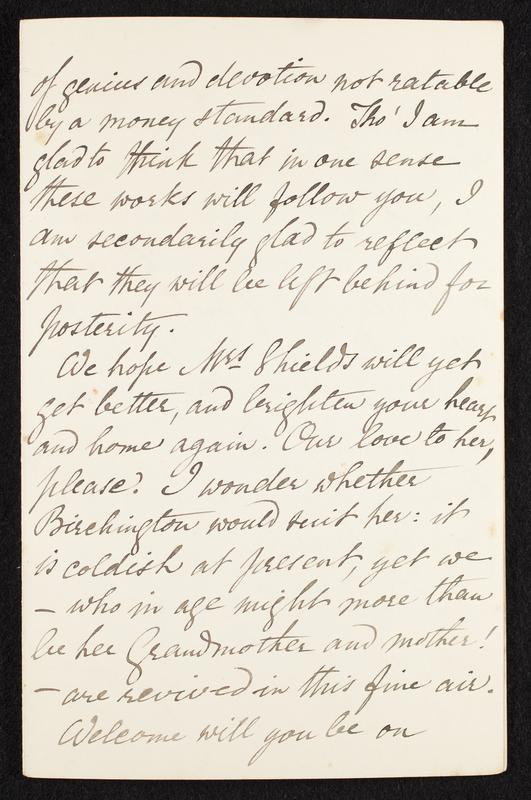 of genius and devotion not ratable
by a money standard. Tho' I am
glad to think that in one sense
these works will follow you, I
am secondarily glad to reflect
that they will be left behind for
posterity.
We hope Mrs Shields will yet
get better, and brighten your heart
and home again. Our love to her,
please. I wonder whether
Birchington would suit her: it
is coldish at present, yet we
– who in age might more than
be her Grandmother and mother!
– are revived in this fine air.
Welcome will you be on